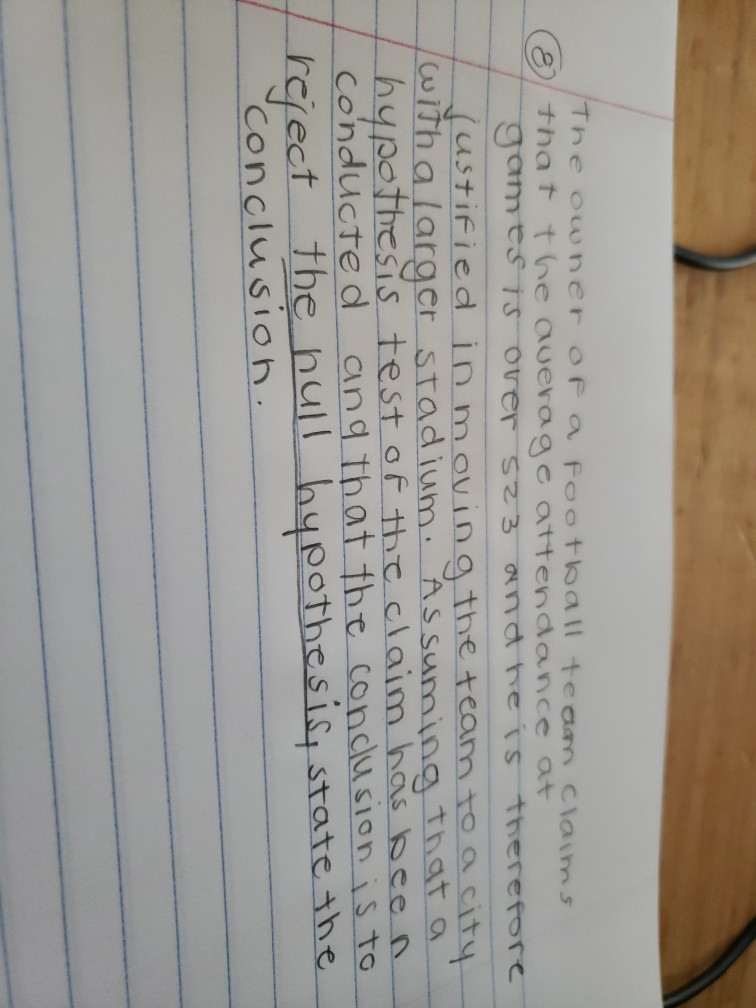 The owner of a football team claims
⑧ that the average attendance at
games is over 523 and he is therefore
justified in moving the team to a city
with a larger stadium. Assuming that a
hypothesis test of the claim has been
conducted and that the conclusion is to
reject the null hypothesis, state the
conclusion.